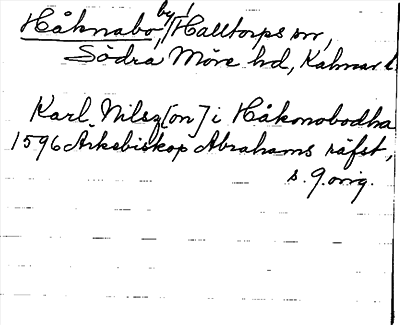 Håknabo, by, Halltorps sn,
Södra Möre hd, Kalmar l.
Karl Nilsz[on] i Håkonabodha
1596 Ärkebiskop Abrahams räfst,
s. 9. orig.